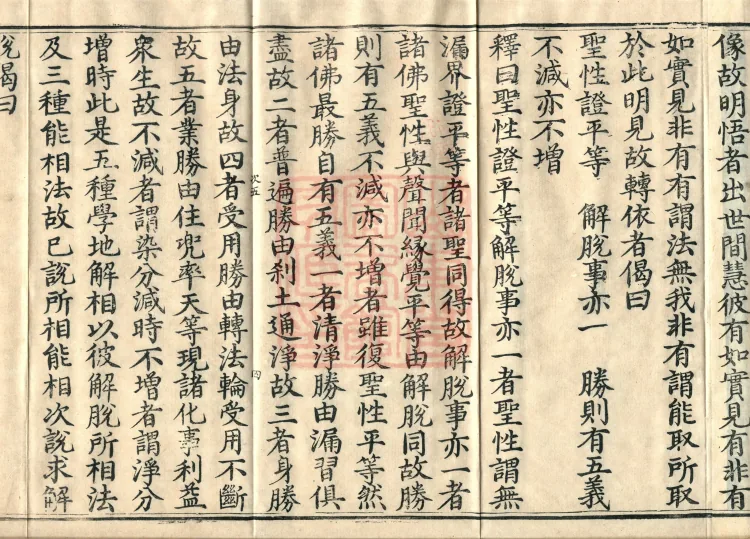 像故明悟者出世間慧彼有如實見有非有
如實見非有有謂法無我非有謂能取所取
於此明見故轉依者偈曰
聖性證平等　解脫事亦一　勝則有五義
不減亦不增
釋曰聖性證平等解脫事亦一者聖性謂無
漏界證平等者諸聖同得故解脫事亦一者
諸佛聖性與聲聞緣覺平等由解脫同故勝
則有五義不減亦不增者雖復聖性平等然
諸佛最勝自有五義一者清淨勝由漏習俱
盡故二者普遍勝由刹土通淨故三者身勝
次五
四
由法身故四者受用勝由轉法輪受用不斷
故五者業勝由住兜率天等現諸化事利益
衆生故不減者謂染分減時不增者謂淨分
增時此是五種學地解相以彼解脫所相法
及三種能相法故已說所相能相次說求解
說偈曰